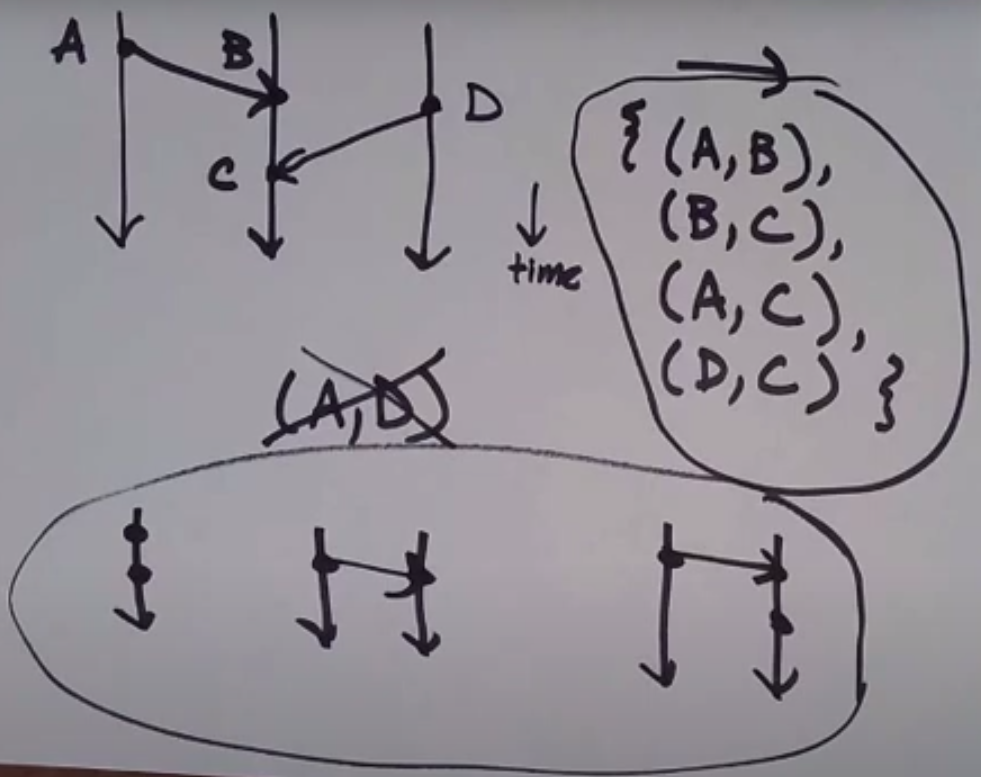 A
B
D
C
time
{ (A, B),
(B, C),
(A, C),
(D, C) }
(A, D)